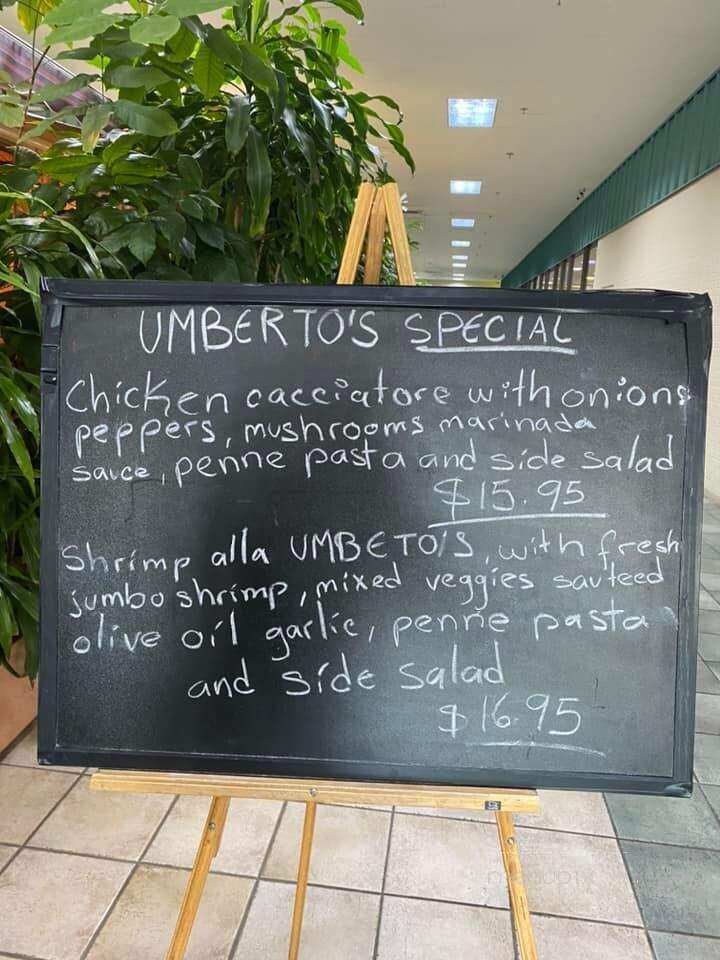 UMBERTO'S SPECIAL
Chicken cacciatore with onions
peppers, mushrooms marinada
sauce, penne pasta and side salad
$15.95
Shrimp alla UMBETO'S, with fresh
jumbo shrimp, mixed veggies sauteed
olive oil garlic, penne pasta
and side salad
$16.95